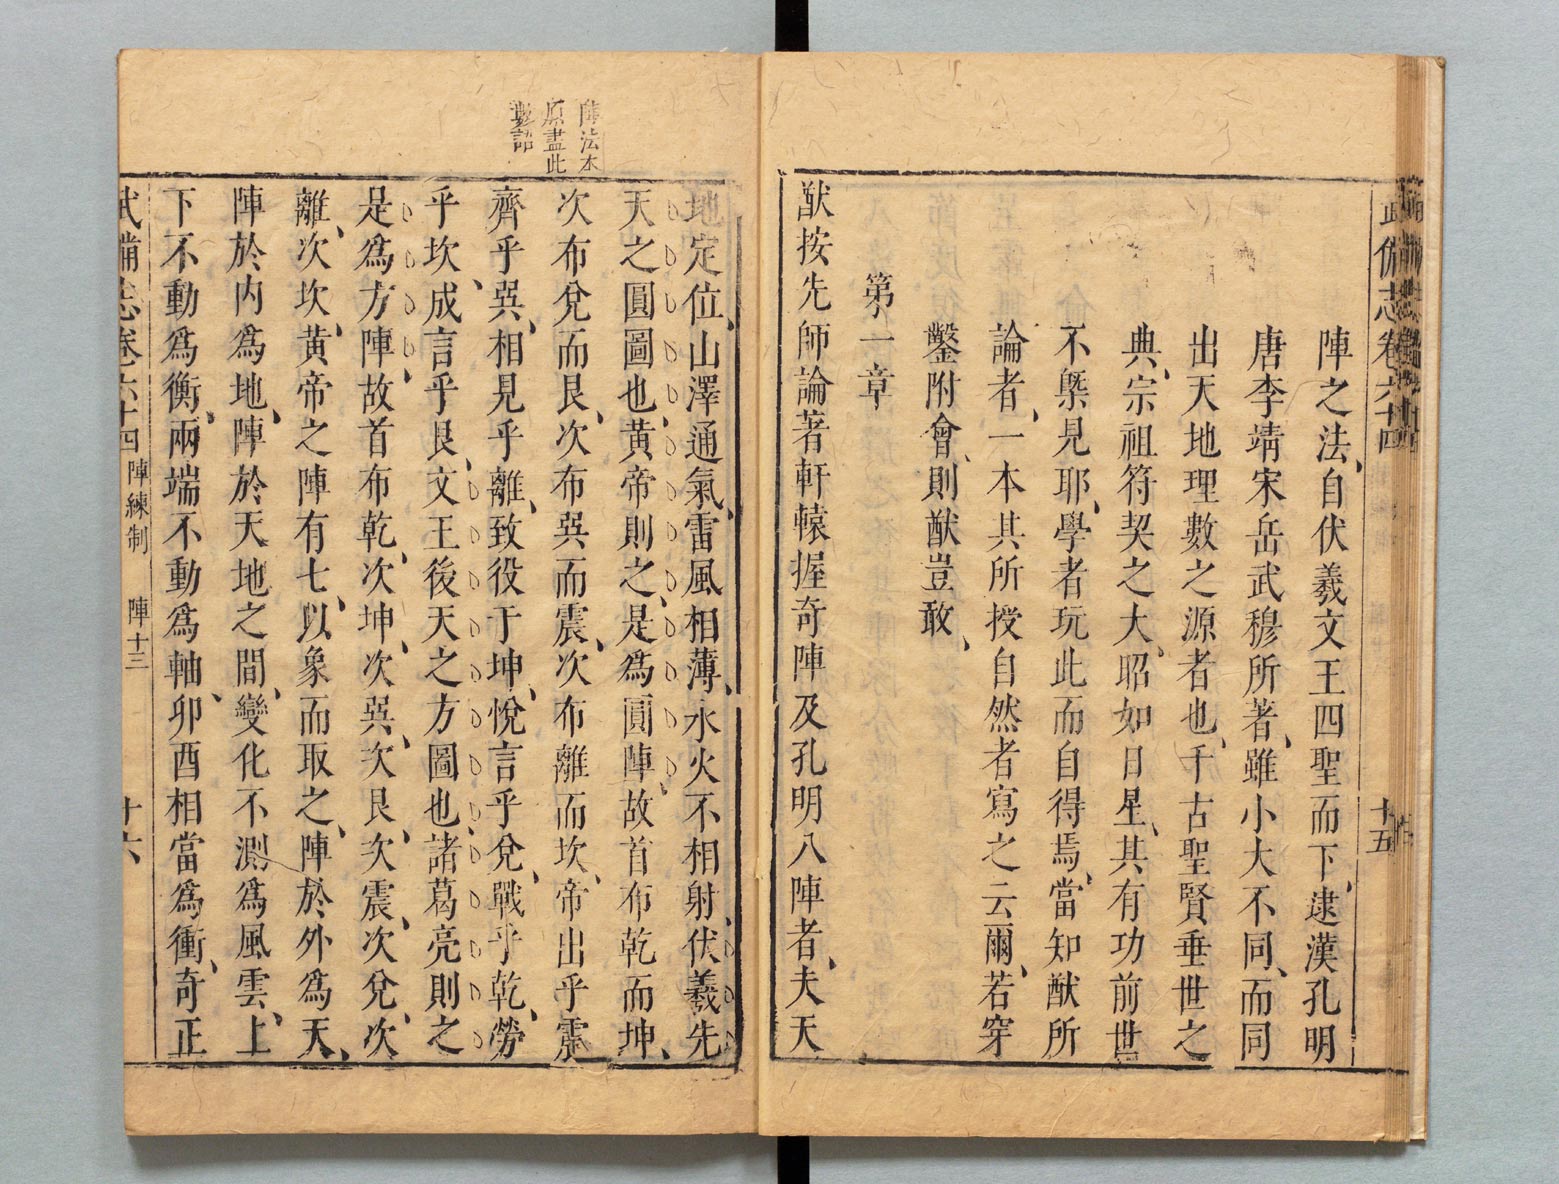 武備志卷六十四
十五
陣之法自伏羲文王四聖而下逮漢孔明
唐李靖宋岳武穆所著雖小大不同而同
出天地理數之源者也千古聖賢垂世之
典宗祖符契之大昭如日星其有功前世
不槩見耶學者玩此而自得焉當知猷所
論者一本其所授自然者寫之云爾若穿
鑿附會則猷豈敢
第一章
猷按先師論著軒轅握奇陣及孔明八陣者夫天
陣法本
原盡此
數語
地定位山澤通氣雷風相薄水火不相射伏羲先
天之圓圖也黃帝則之是為圓陣故首布乾而坤
次布兌而艮次布巽而震次布離而坎帝出乎震
齊乎巽相見乎離致役于坤悅言乎兌戰乎乾勞
乎坎成言乎艮文王後天之方圖也諸葛亮則之
是為方陣故首布乾次坤次巽次艮次震次兌次
離次坎黃帝之陣有七以象而取之陣於外為天
陣於內為地陣於天地之間變化不測為風雲上
下不動為衡兩端不動為軸卯酉相當為衝奇正
武備志卷六十四 陣練制 陣十三
十六